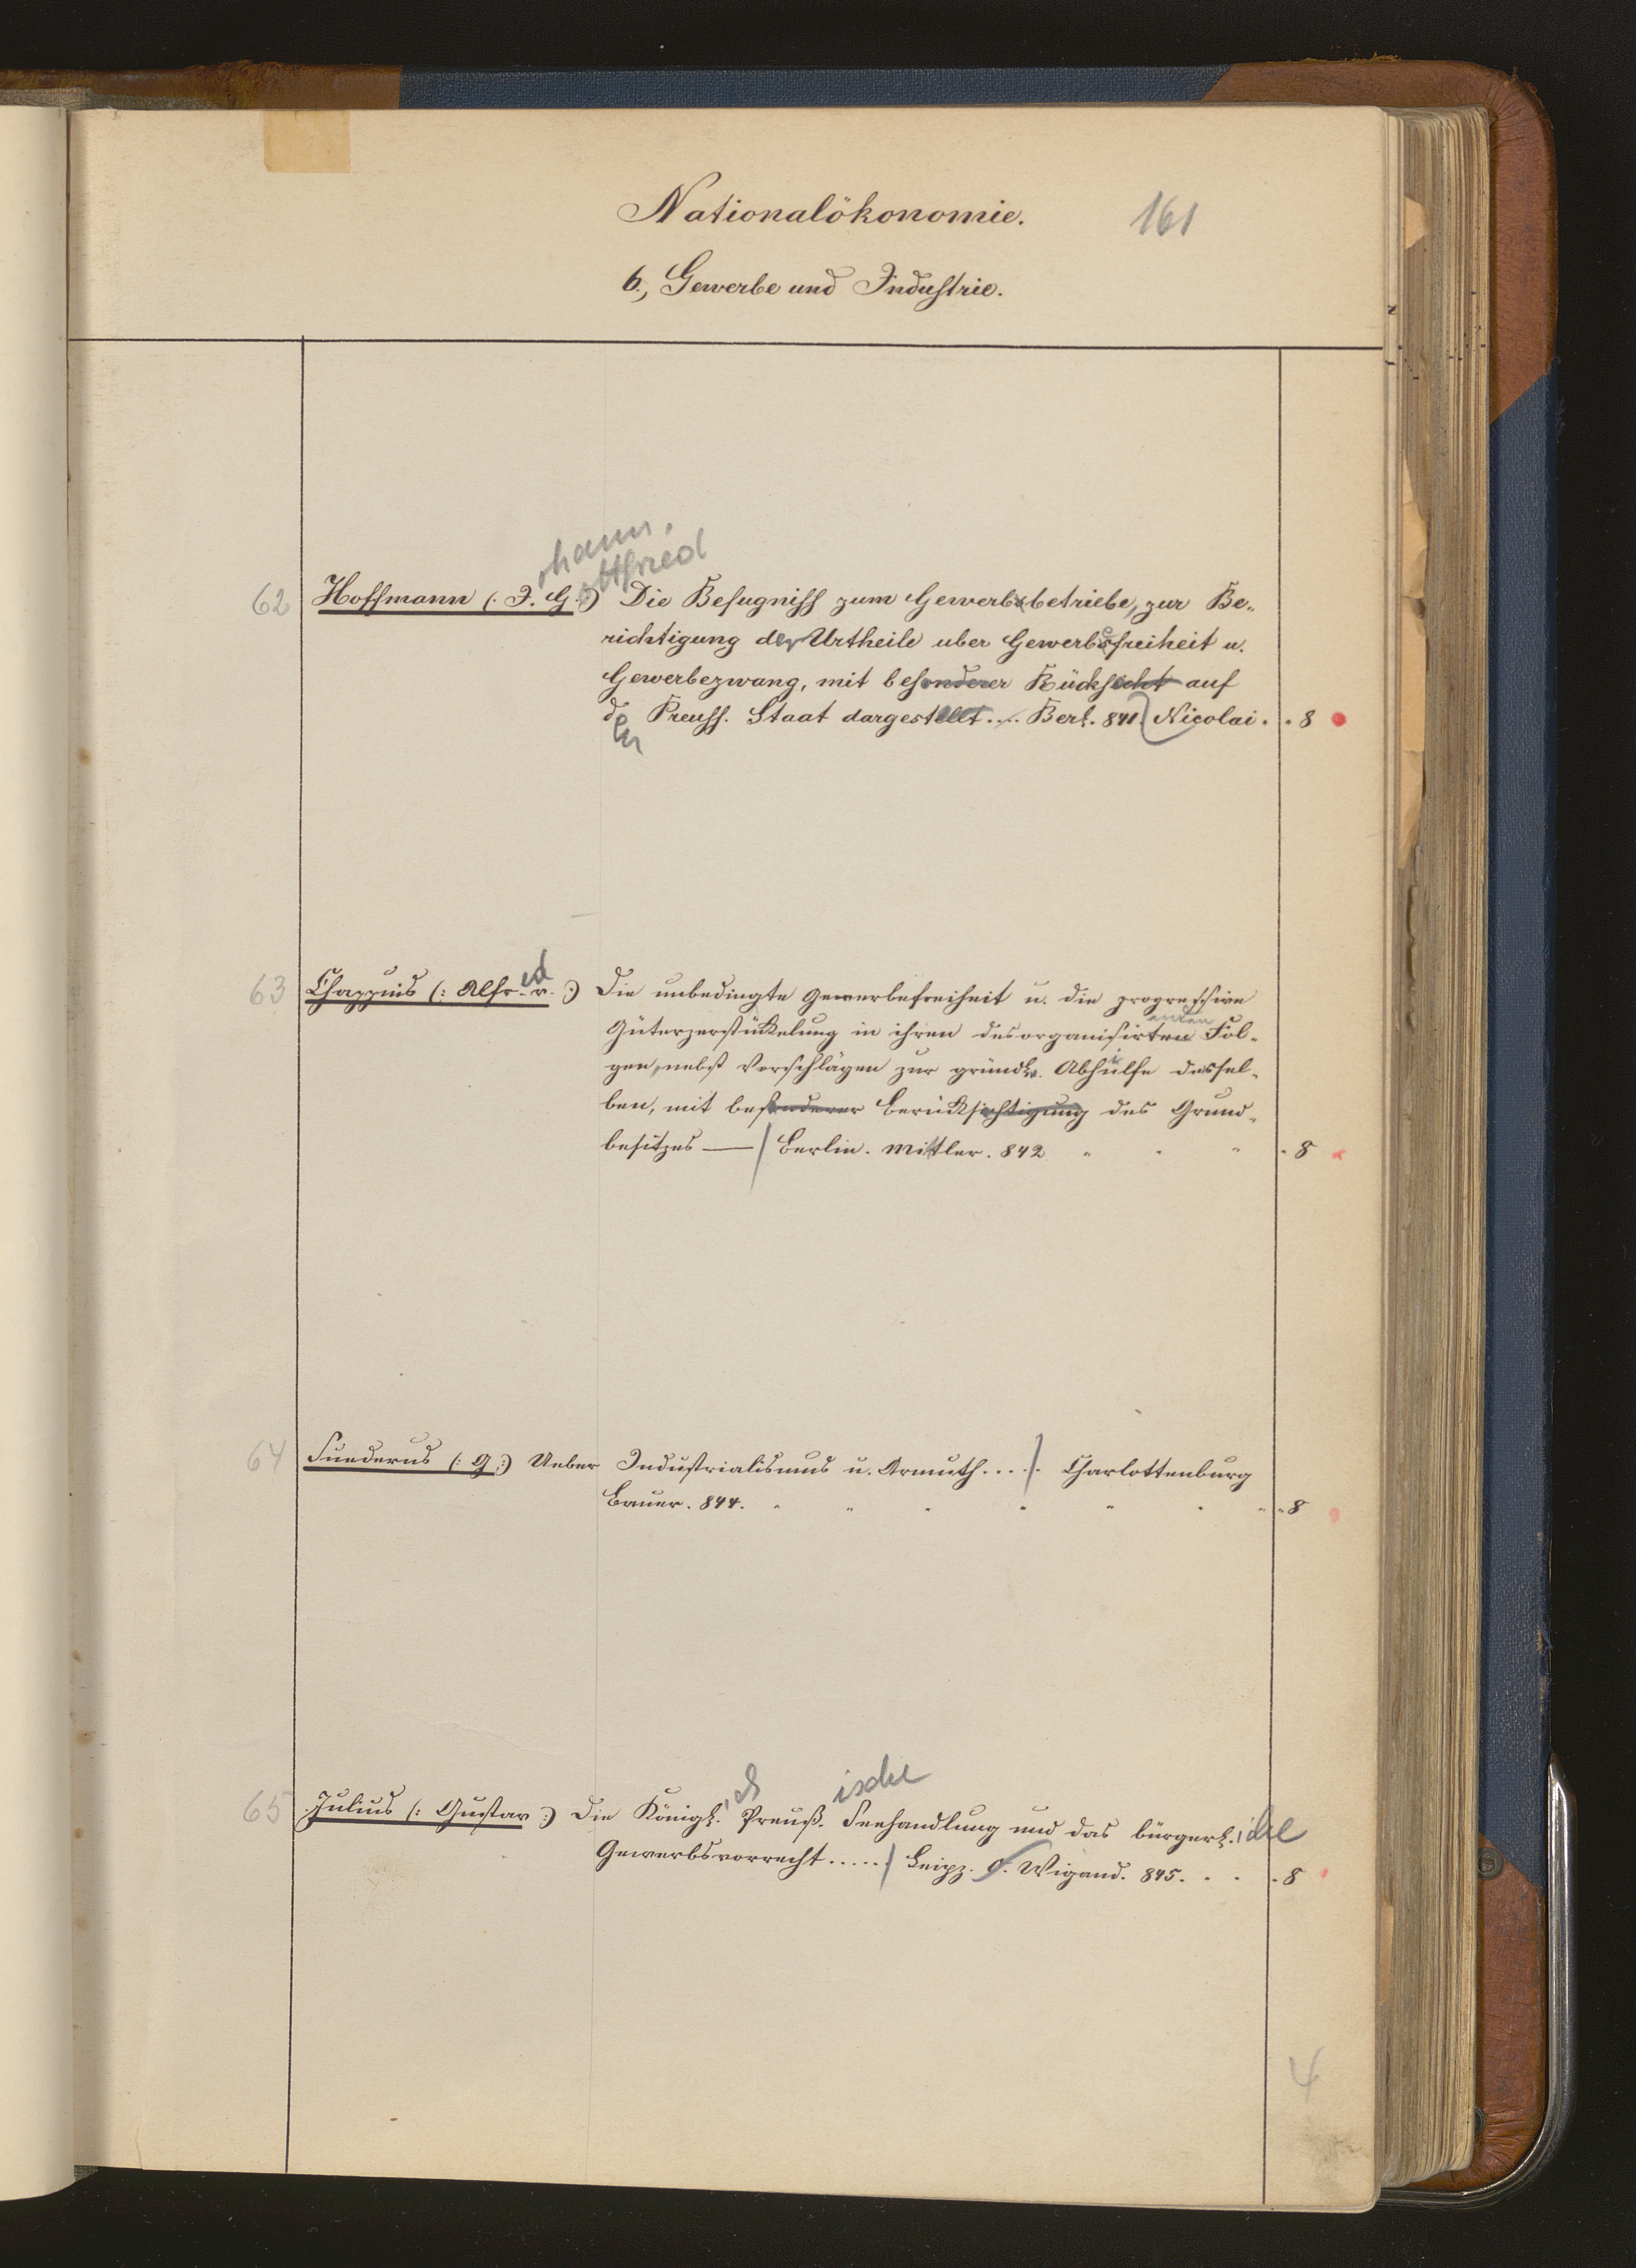 Nationalökonomie.
161
6., Gewerbe und Industrie.
ohann,
ottfried
62 Hoffmann (: J. G.:) Die Befugniss zum Gewerbsbetriebe, zur Be-
richtigung der Urtheile uber Gewerbefreiheit u.
Gewerbezwang, mit besonderer Rücksicht auf
den Preuss. Staat dargestellt .... Berl. 841. Nicolai . . 8
63 Chappuis (: Alfr. ed v. :) Die unbedingte Gewerbefreiheit u. die progressive
enden
Güterzerstückelung in ihren desorganisirten Fol-
gen, nebst Vorschlägen zur gründl. Abhülfe dessel-
ben, mit besonderer Berücksichtigung des Grund-
besitzes — / Berlin. Mittler. 842 " " " . 8
64 Suederus (: G :) Ueber Industrialismus u. Armuth .... / Charlottenburg
Bauer. 844. " " " " " " . 8
ch ische
65 Julius (: Gustav :) Die Königl. Preuß. Seehandlung und das bürgerl. iche
Gewerbsvorrecht ..... / Leipz. O. Wigand. 845. . . . 8
4